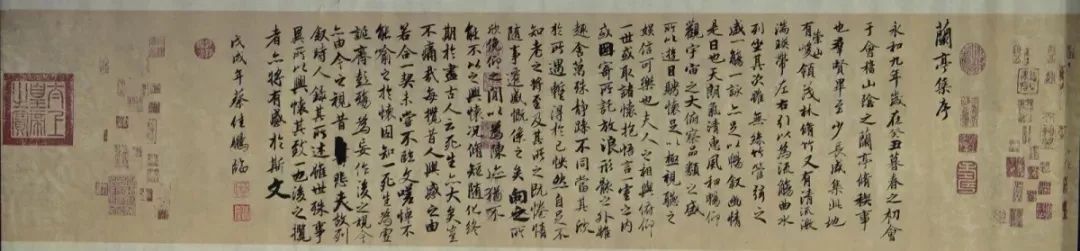 蘭亭集序
永和九年歲在癸丑暮春之初會
于會稽山陰之蘭亭脩稧事
也羣賢畢至少長咸集此地
有崇山峻領茂林脩竹又有清流激
湍暎帶左右引以為流觴曲水
列坐其次雖無絲竹管弦之
盛一觴一詠亦足以暢敘幽情
是日也天朗氣清惠風和暢仰
觀宇宙之大俯察品類之盛
所以遊目騁懷足以極視聽之
娛信可樂也夫人之相與俯仰
一世或取諸懷抱悟言一室之內
或因寄所託放浪形骸之外雖
趣舍萬殊靜躁不同當其欣
於所遇暫得於己怏然自足不
知老之將至及其所之既惓情
隨事遷感慨係之矣向之所
欣俛仰之間以為陳迹猶不
能不以之興懷況脩短隨化終
期於盡古人云死生亦大矣豈
不痛哉每攬昔人興感之由
若合一契未嘗不臨文嗟悼不
能喻之於懷固知一死生為虛
誕齊彭殤為妄作後之視今
亦由今之視昔悲夫故列
敘時人錄其所述雖世殊事
異所以興懷其致一也後之攬
者亦將有感於斯文
戊戌年蔡佳鵬臨
太上皇帝之寶